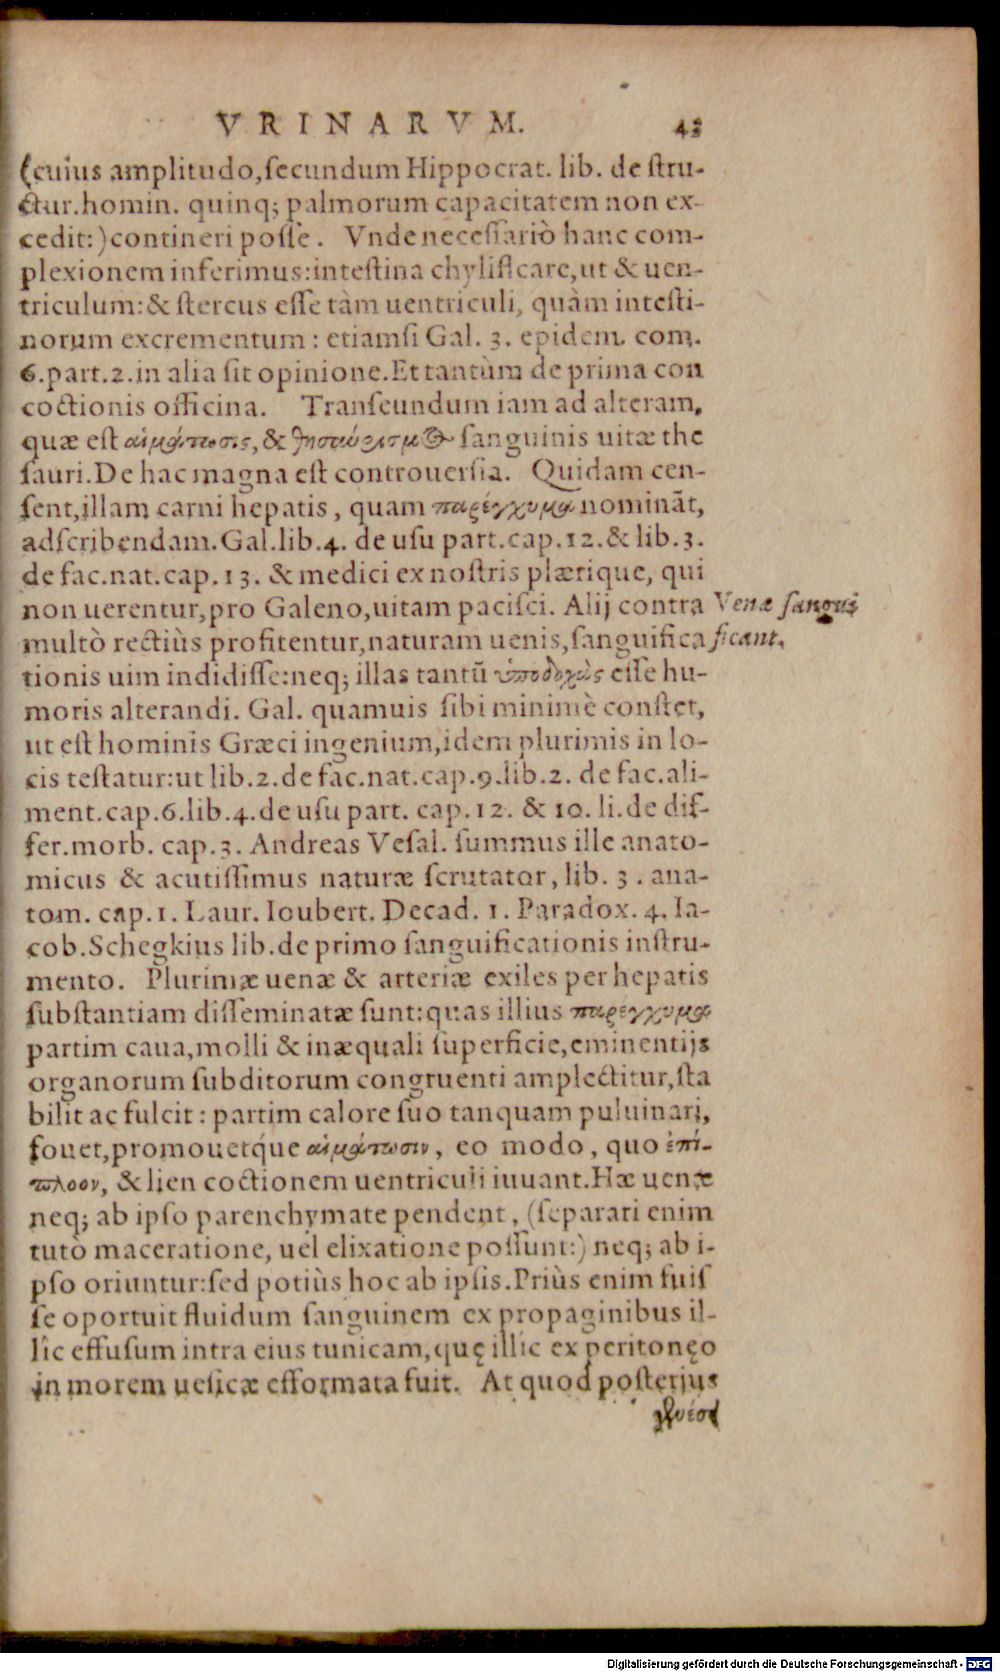 VRINARVM. 43
(cuius amplitudo, secundum Hippocrat. lib. de stru-
ctur. homin. quinq; palmorum capacitatem non ex-
cedit:) contineri posse. Vnde necessariò hanc com-
plexionem inferimus: intestina chylificare, ut & uen-
triculum: & stercus esse tàm uentriculi, quàm intesti-
norum excrementum: etiamsi Gal. 3. epidem. com.
6. part. 2. in alia sit opinione. Et tantùm de prima con
coctionis officina. Transeundum iam ad alteram,
quæ est αἱμάτωσις, & sanguinis uitæ the
sauri. De hac magna est controuersia. Quidam cen-
sent, illam carni hepatis, quam παρέγχυμα nominãt,
adscribendam. Gal. lib. 4. de usu part. cap. 12. & lib. 3.
de fac. nat. cap. 13. & medici ex nostris plærique, qui
non uerentur, pro Galeno, uitam pacisci. Alij contra
Venæ sangui
multò rectiùs profitentur, naturam uenis, sanguifica
ficant.
tionis uim indidisse: neq; illas tantũ ὑποδοχὰς esse hu-
moris alterandi. Gal. quamuis sibi minimè constet,
ut est hominis Græci ingenium, idem plurimis in lo-
cis testatur: ut lib. 2. de fac. nat. cap. 9. lib. 2. de fac. ali-
ment. cap. 6. lib. 4. de usu part. cap. 12. & 10. li. de dif-
fer. morb. cap. 3. Andreas Vesal. summus ille anato-
micus & acutissimus naturæ scrutator, lib. 3. ana-
tom. cap. 1. Laur. Ioubert. Decad. 1. Paradox. 4. Ia-
cob. Schegkius lib. de primo sanguificationis instru-
mento. Plurimæ uenæ & arteriæ exiles per hepatis
substantiam disseminatæ sunt: quas illius παρέγχυμα
partim caua, molli & inæquali superficie, eminentijs
organorum subditorum congruenti amplectitur, sta
bilit ac fulcit: partim calore suo tanquam puluinari,
fouet, promouetq́ue αἱμάτωσιν, eo modo, quo ἐπί-
πλοον, & lien coctionem uentriculi iuuant. Hæ uenæ
neq; ab ipso parenchymate pendent, (separari enim
tutò maceratione, uel elixatione possunt:) neq; ab i-
pso oriuntur: sed potiùs hoc ab ipsis. Priùs enim fuis
se oportuit fluidum sanguinem ex propaginibus il-
lic effusum intra eius tunicam, quę illic ex peritonęo
in morem uesicæ efformata fuit. At quod posterius
Digitalisierung gefördert durch die Deutsche Forschungsgemeinschaft - DFG